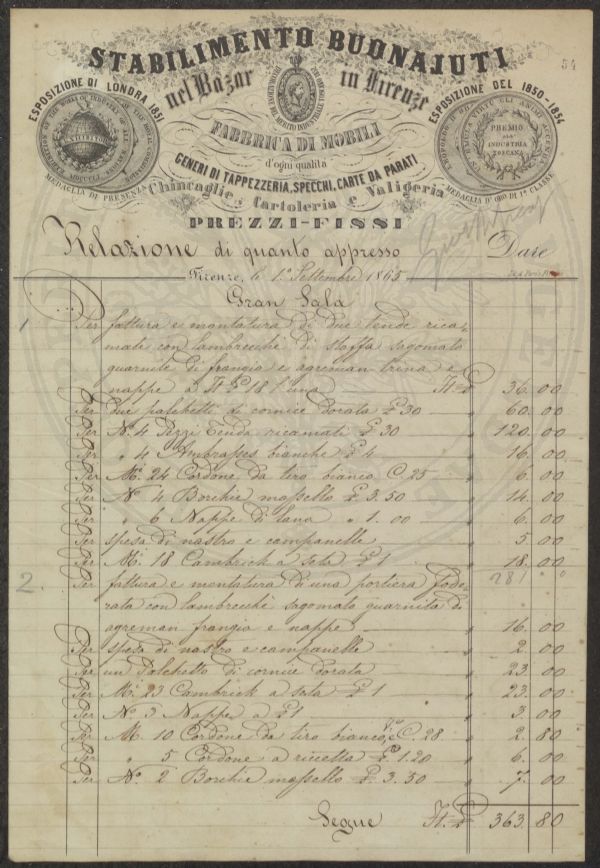 54
STABILIMENTO BUONAJUTI
nel Bazar in Firenze
ESPOSIZIONE DI LONDRA 1851
ESPOSIZIONE DEL 1850-1854
FABBRICA DI MOBILI
d'ogni qualità
GENERI DI TAPPEZZERIA, SPECCHI, CARTE DA PARATI
Chincaglie, Cartoleria e Valigeria
MEDAGLIA DI PRESENZA
MEDAGLIA D'ORO DI 1a CLASSE
PREMIO ALLA INDUSTRIA TOSCANA
PREZZI-FISSI
Relazione di quanto appresso Dare
Firenze, li 1º Settembre 1865
Gran Sala
1 Per fattura e montatura di due tende rica-
mate con lambrecchi di stoffa sagomato
guarnite di frangia e agreman trina e
nappe a It £ 18 l'una It £ 36. 00
Per due palchetti di cornice dorata £ 30 " 60. 00
Per No. 4 Pezzi Tenda ricamati £ 30 " 120. 00
Per " 4 Ambrasses bianche £ 4 " 16. 00
Per Mi. 24 Cordone da tiro bianco C. 25 " 6. 00
Per No. 4 Borchie massello £ 3. 50 " 14. 00
Per " 6 Nappe di lana " 1. 00 " 6. 00
Per spesa di nastro e campanelle " 5. 00
Per Mi. 18 Cambrick a sola £ 1 " 18. 00
281 " "
2 Per fattura e montatura di una portiera fode-
rata con lambrecchi sagomato guarnita di
agreman frangia e nappe " 16. 00
Per spesa di nastro e campanelle " 2. 00
Per un Palchetto di cornice dorata " 23. 00
Per Mi. 23 Cambrick a sola £ 1 " 23. 00
Per No. 3 Nappe a £ 1 " 3. 00
Per M. 10 Cordone da tiro bianco C. 28 " 2. 80
Per " 5 Cordone a £ 1. 20 " 6. 00
Per No. 2 Borchie massello £ 3. 50 " 7. 00
Segue It £ 363. 80